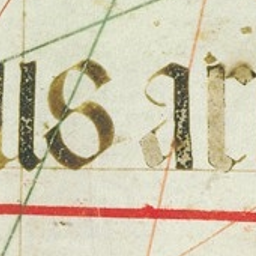 us ar